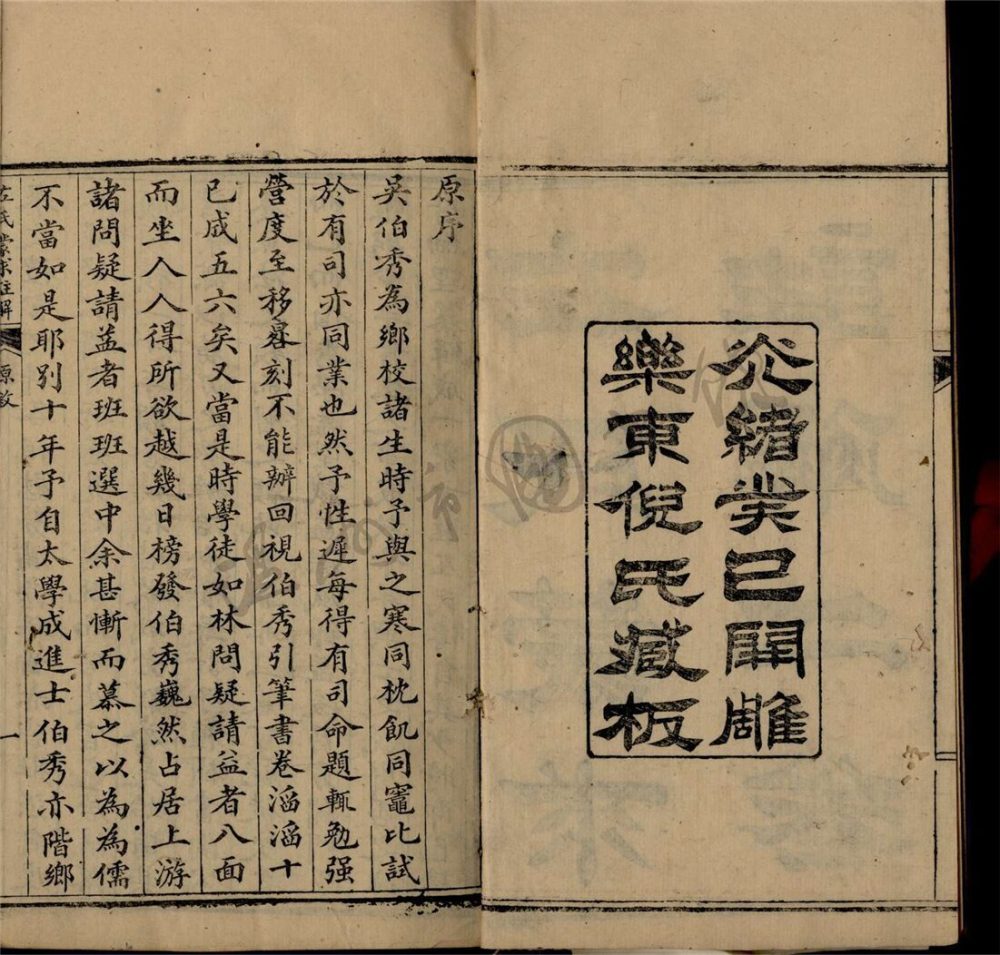 光緒癸巳開雕
樂東倪氏臧板
原序
吳伯秀為鄉校諸生時予與之寒同枕飢同竈比試
於有司亦同業也然予性遲每得有司命題輒勉强
營度至移晷刻不能辦回視伯秀引筆書卷滔滔十
已成五六矣又當是時學徒如林問疑請益者八面
而坐人人得所欲越幾日榜發伯秀巍然占居上游
諸問疑請益者班班選中余甚慚而慕之以為為儒
不當如是耶別十年予自太學成進士伯秀亦階鄉
左氏蒙求註解
原敘
一